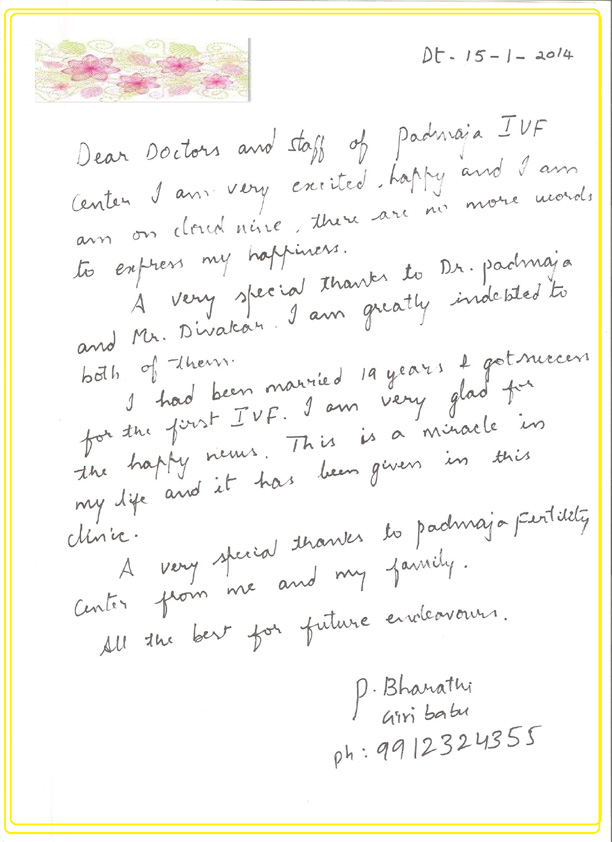 Dt - 15-1-2014
Dear Doctors and staff of padmaja IVF
center I am very excited, happy and I am
am on cloud nine, there are no more words
to express my happiness.
A very special thanks to Dr. padmaja
and Mr. Divakar. I am greatly indebted to
both of them.
I had been married 19 years & got success
for the first IVF. I am very glad for
the happy news. This is a miracle in
my life and it has been given in this
clinic.
A very special thanks to padmaja Fertility
center from me and my family.
All the best for future endeavours.
P. Bharathi
Giri babu
ph: 9912324355